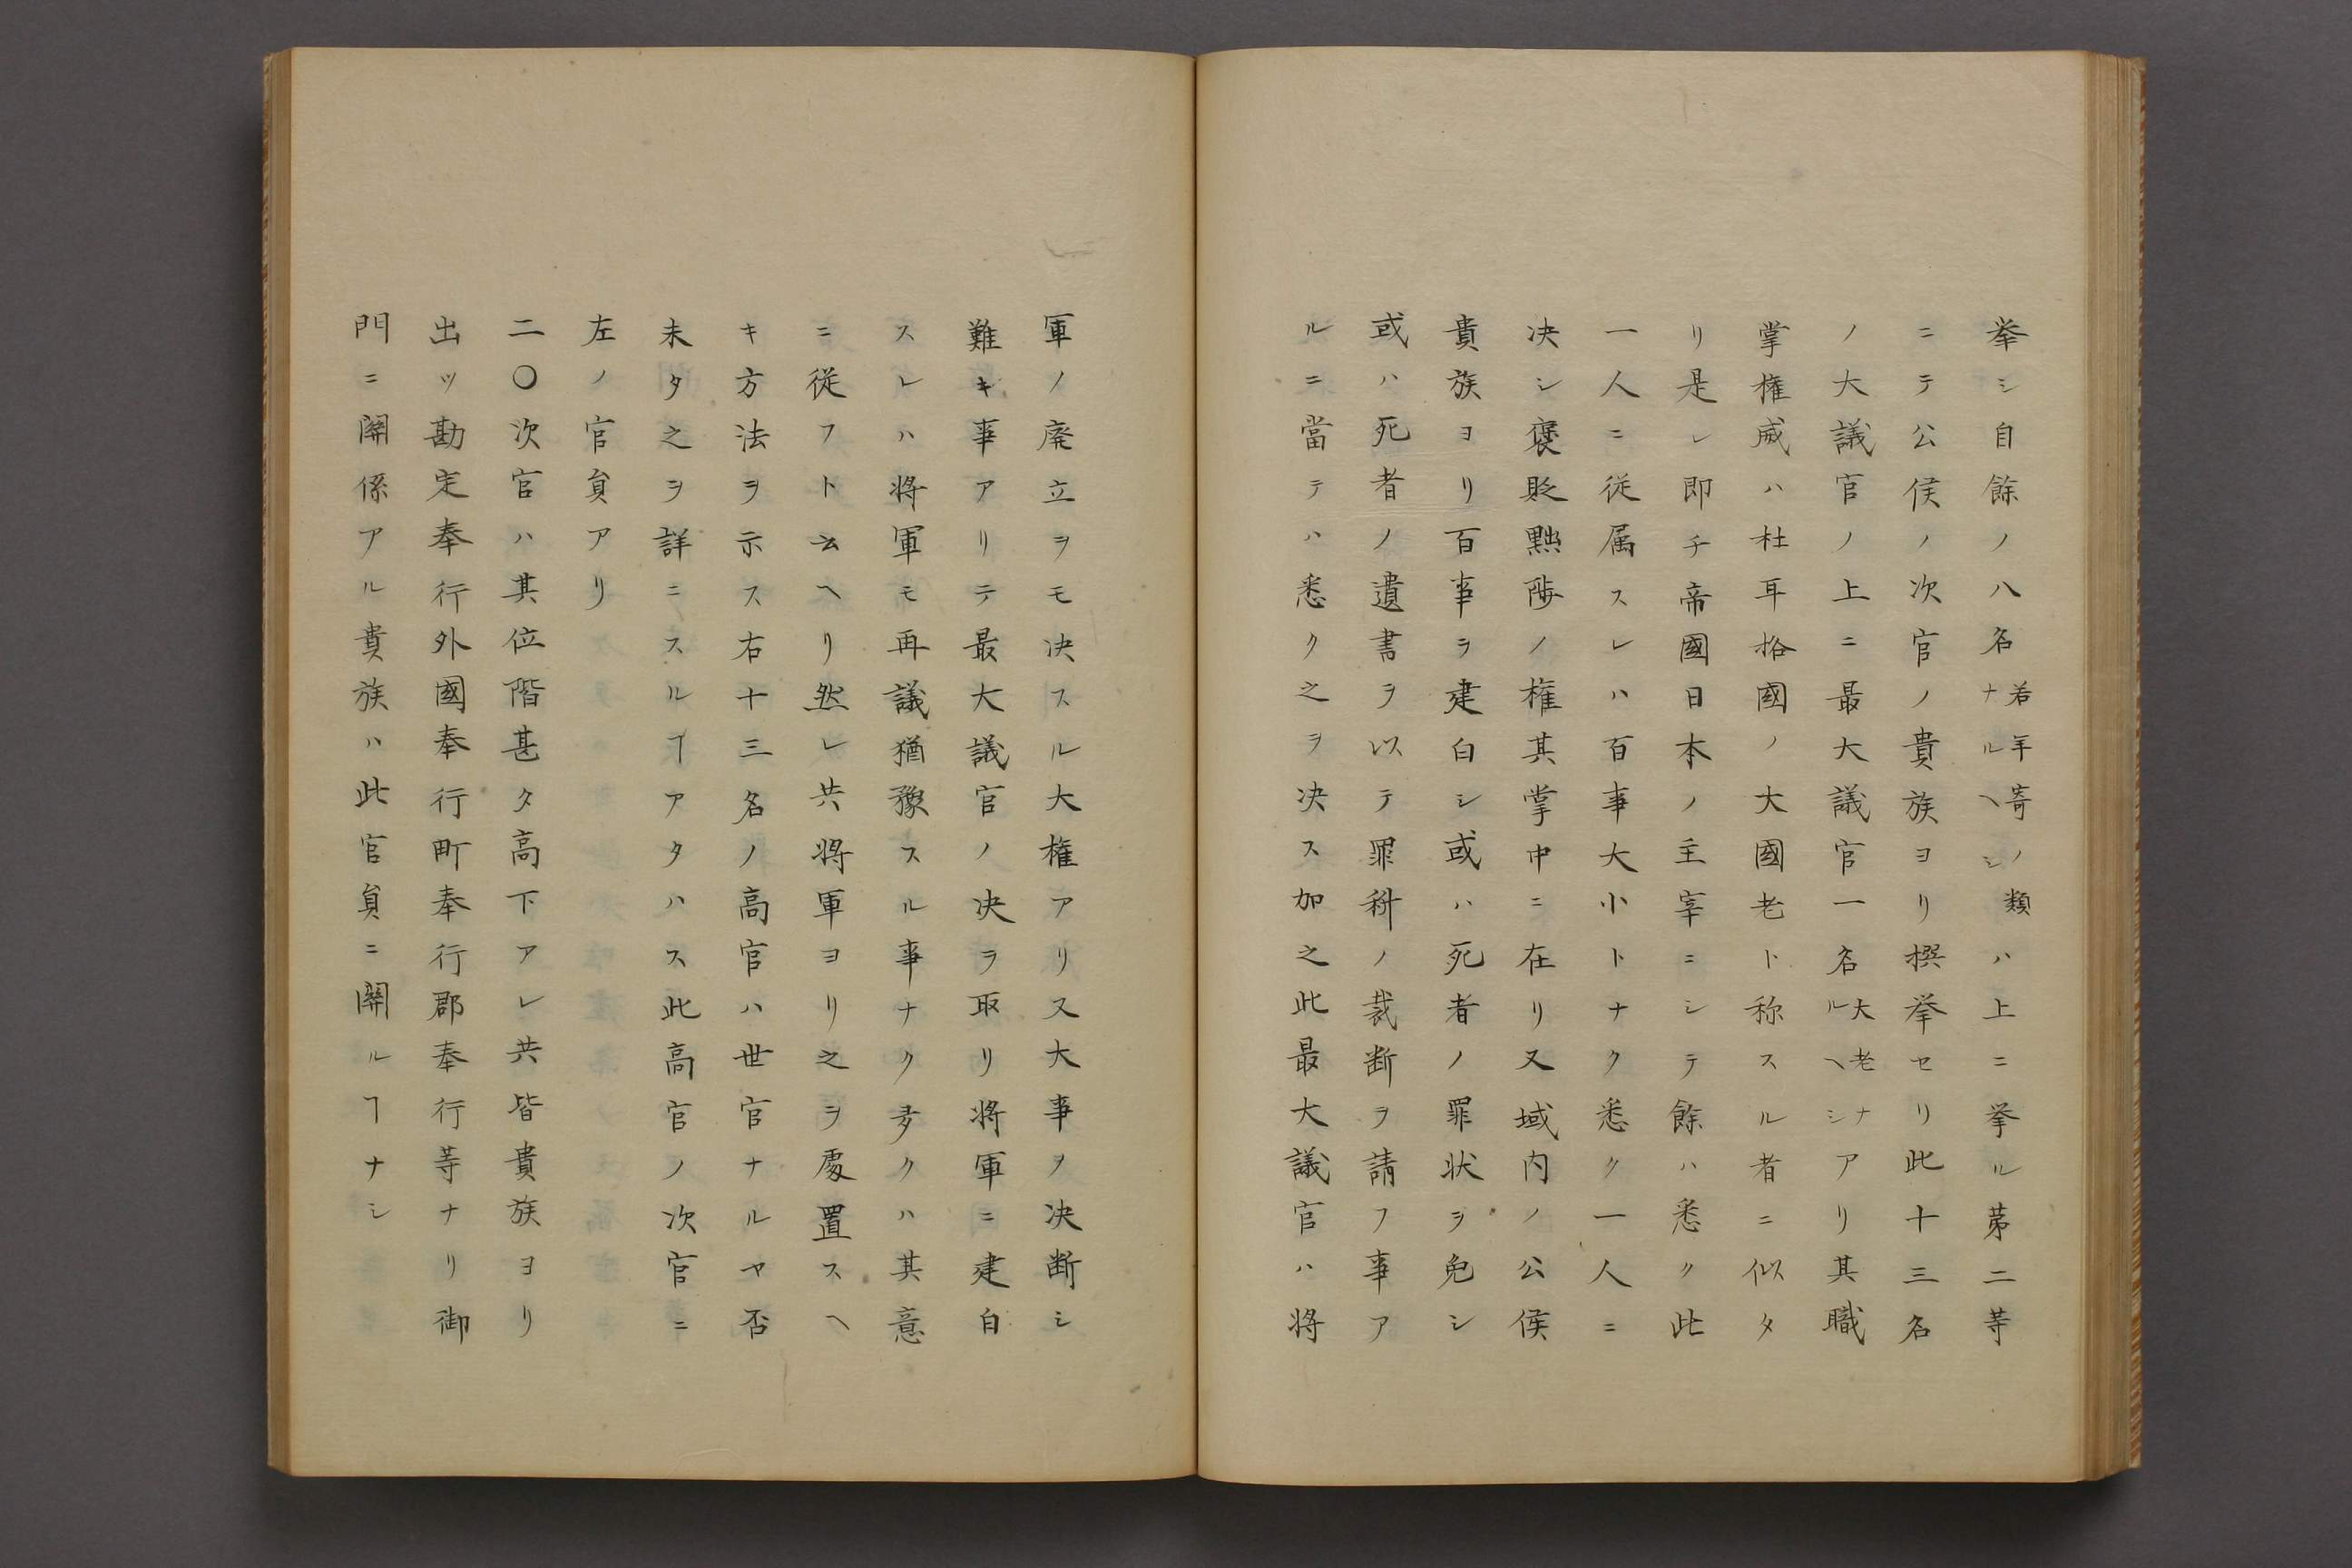 挙シ自餘ノ八名若年寄ノ類ナルヘシハ上ニ挙ル苐二等
ニテ公侯ノ次官ノ貴族ヨリ撰挙セリ此十三名
ノ大議官ノ上ニ最大議官一名大老ナルヘシアリ其職
掌権威ハ杜耳格國ノ大國老ト称スル者ニ似タ
リ是レ即チ帝國日本ノ主宰ニシテ餘ハ悉ク此
一人ニ従属スレハ百事大小トナク悉ク一人ニ
决シ褒貶黜陟ノ権其掌中ニ在リ又域内ノ公侯
貴族ヨリ百事ヲ建白シ或ハ死者ノ罪状ヲ免シ
或ハ死者ノ遺書ヲ以テ罪科ノ裁断ヲ請フ事ア
ルニ當テハ悉ク之ヲ决ス加之此最大議官ハ将
軍ノ廃立ヲモ决スル大権アリ又大事ヲ决断シ
難キ事アリテ最大議官ノ决ヲ取リ将軍ニ建白
スレハ将軍モ再議猶豫スル事ナク多クハ其意
ニ従フト云ヘリ然レ共将軍ヨリ之ヲ處置スヘ
キ方法ヲ示ス右十三名ノ高官ハ世官ナルヤ否
未タ之ヲ詳ニスルヿアタハス此高官ノ次官ニ
左ノ官負アリ
二〇次官ハ其位階甚タ高下アレ共皆貴族ヨリ
出ツ勘定奉行外國奉行町奉行郡奉行等ナリ御
門ニ関係アル貴族ハ此官負ニ関ルヿナシ